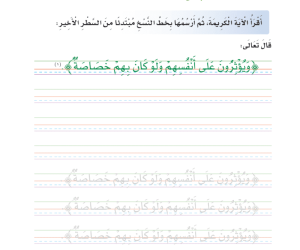 أَقْرَأُ الْآيَةَ الْكَرِيمَةَ، ثُمَّ أَرْسُمُهَا بِخَطِّ النَّسْخِ مُبْتَدِئًا مِنَ السَّطْرِ الْأَخِيرِ:
قَالَ تَعَالَى:
﴿وَيُؤْثِرُونَ عَلَى أَنْفُسِهِمْ وَلَوْ كَانَ بِهِمْ خَصَاصَةٌ﴾ (١)
﴿وَيُؤْثِرُونَ عَلَى أَنْفُسِهِمْ وَلَوْ كَانَ بِهِمْ خَصَاصَةٌ﴾
﴿وَيُؤْثِرُونَ عَلَى أَنْفُسِهِمْ وَلَوْ كَانَ بِهِمْ خَصَاصَةٌ﴾
﴿وَيُؤْثِرُونَ عَلَى أَنْفُسِهِمْ وَلَوْ كَانَ بِهِمْ خَصَاصَةٌ﴾